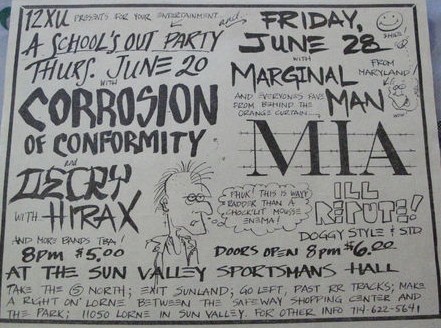 12XU PRESENTS FOR YOUR ENTERTAINMENT
A SCHOOL'S OUT PARTY
THURS. JUNE 20
WITH
CORROSION
OF CONFORMITY
AND
DECRY
WITH HIRAX
AND MORE BANDS TBA!
8pm $5.00
AND
FRIDAY,
JUNE 28
WITH
MARGINAL
MAN
FROM
MARYLAND!
AND EVERYONES FAVS
FROM BEHIND THE
ORANGE CURTAIN
MIA
PHUK! THIS IS WAY
RADDER THAN A
CHOCK'LIT MOUSSE
ENEMA!
ILL
REPUTE!
DOGGY STYLE & STD
DOORS OPEN 8pm $6.00
AT THE SUN VALLEY SPORTSMANS HALL
TAKE THE 5 NORTH; EXIT SUNLAND; GO LEFT, PAST RR TRACKS; MAKE
A RIGHT ON LORNE BETWEEN THE SAFEWAY SHOPPING CENTER AND
THE PARK; 11050 LORNE IN SUN VALLEY. FOR OTHER INFO 714-622-5641